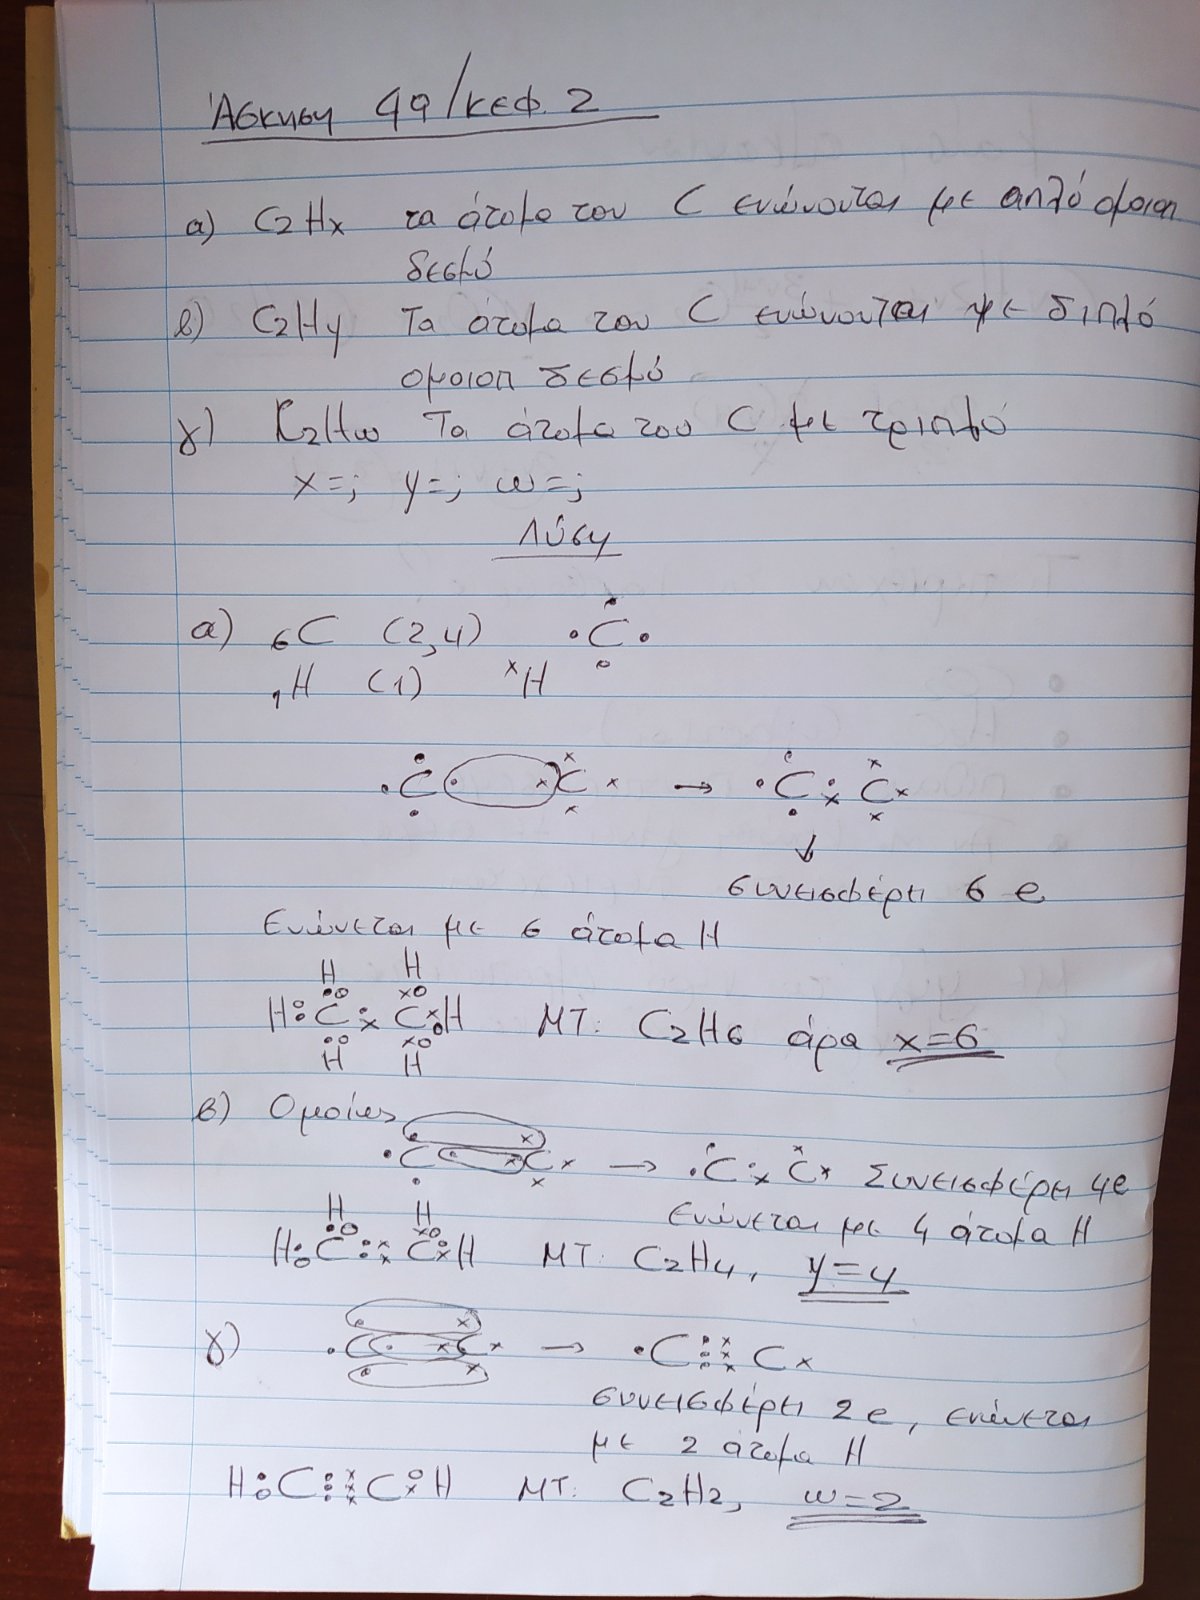 Άσκηση 49/κεφ. 2
α) C2Hx τα άτομα του C ενώνονται με απλό ομοιοπ
δεσμό
β) C2Hy Τα άτομα του C ενώνονται με διπλό
ομοιοπ δεσμό
γ) C2Hω Τα άτομα του C με τριπλό
x=; y=; ω=;
Λύση
α) 6C (2,4) C
1H (1) H
C C → C C
↓
συνεισφέρει 6 e
Ενώνεται με 6 άτομα H
H H
H C C H ΜΤ: C2H6 άρα x=6
H H
β) Ομοίως
C C → C C Συνεισφέρει 4e
ενώνεται με 4 άτομα H
H H
H C C H ΜΤ: C2H4, y=4
γ) C C → C C
συνεισφέρει 2e, ενώνεται
με 2 άτομα H
H C C H ΜΤ: C2H2, ω=2